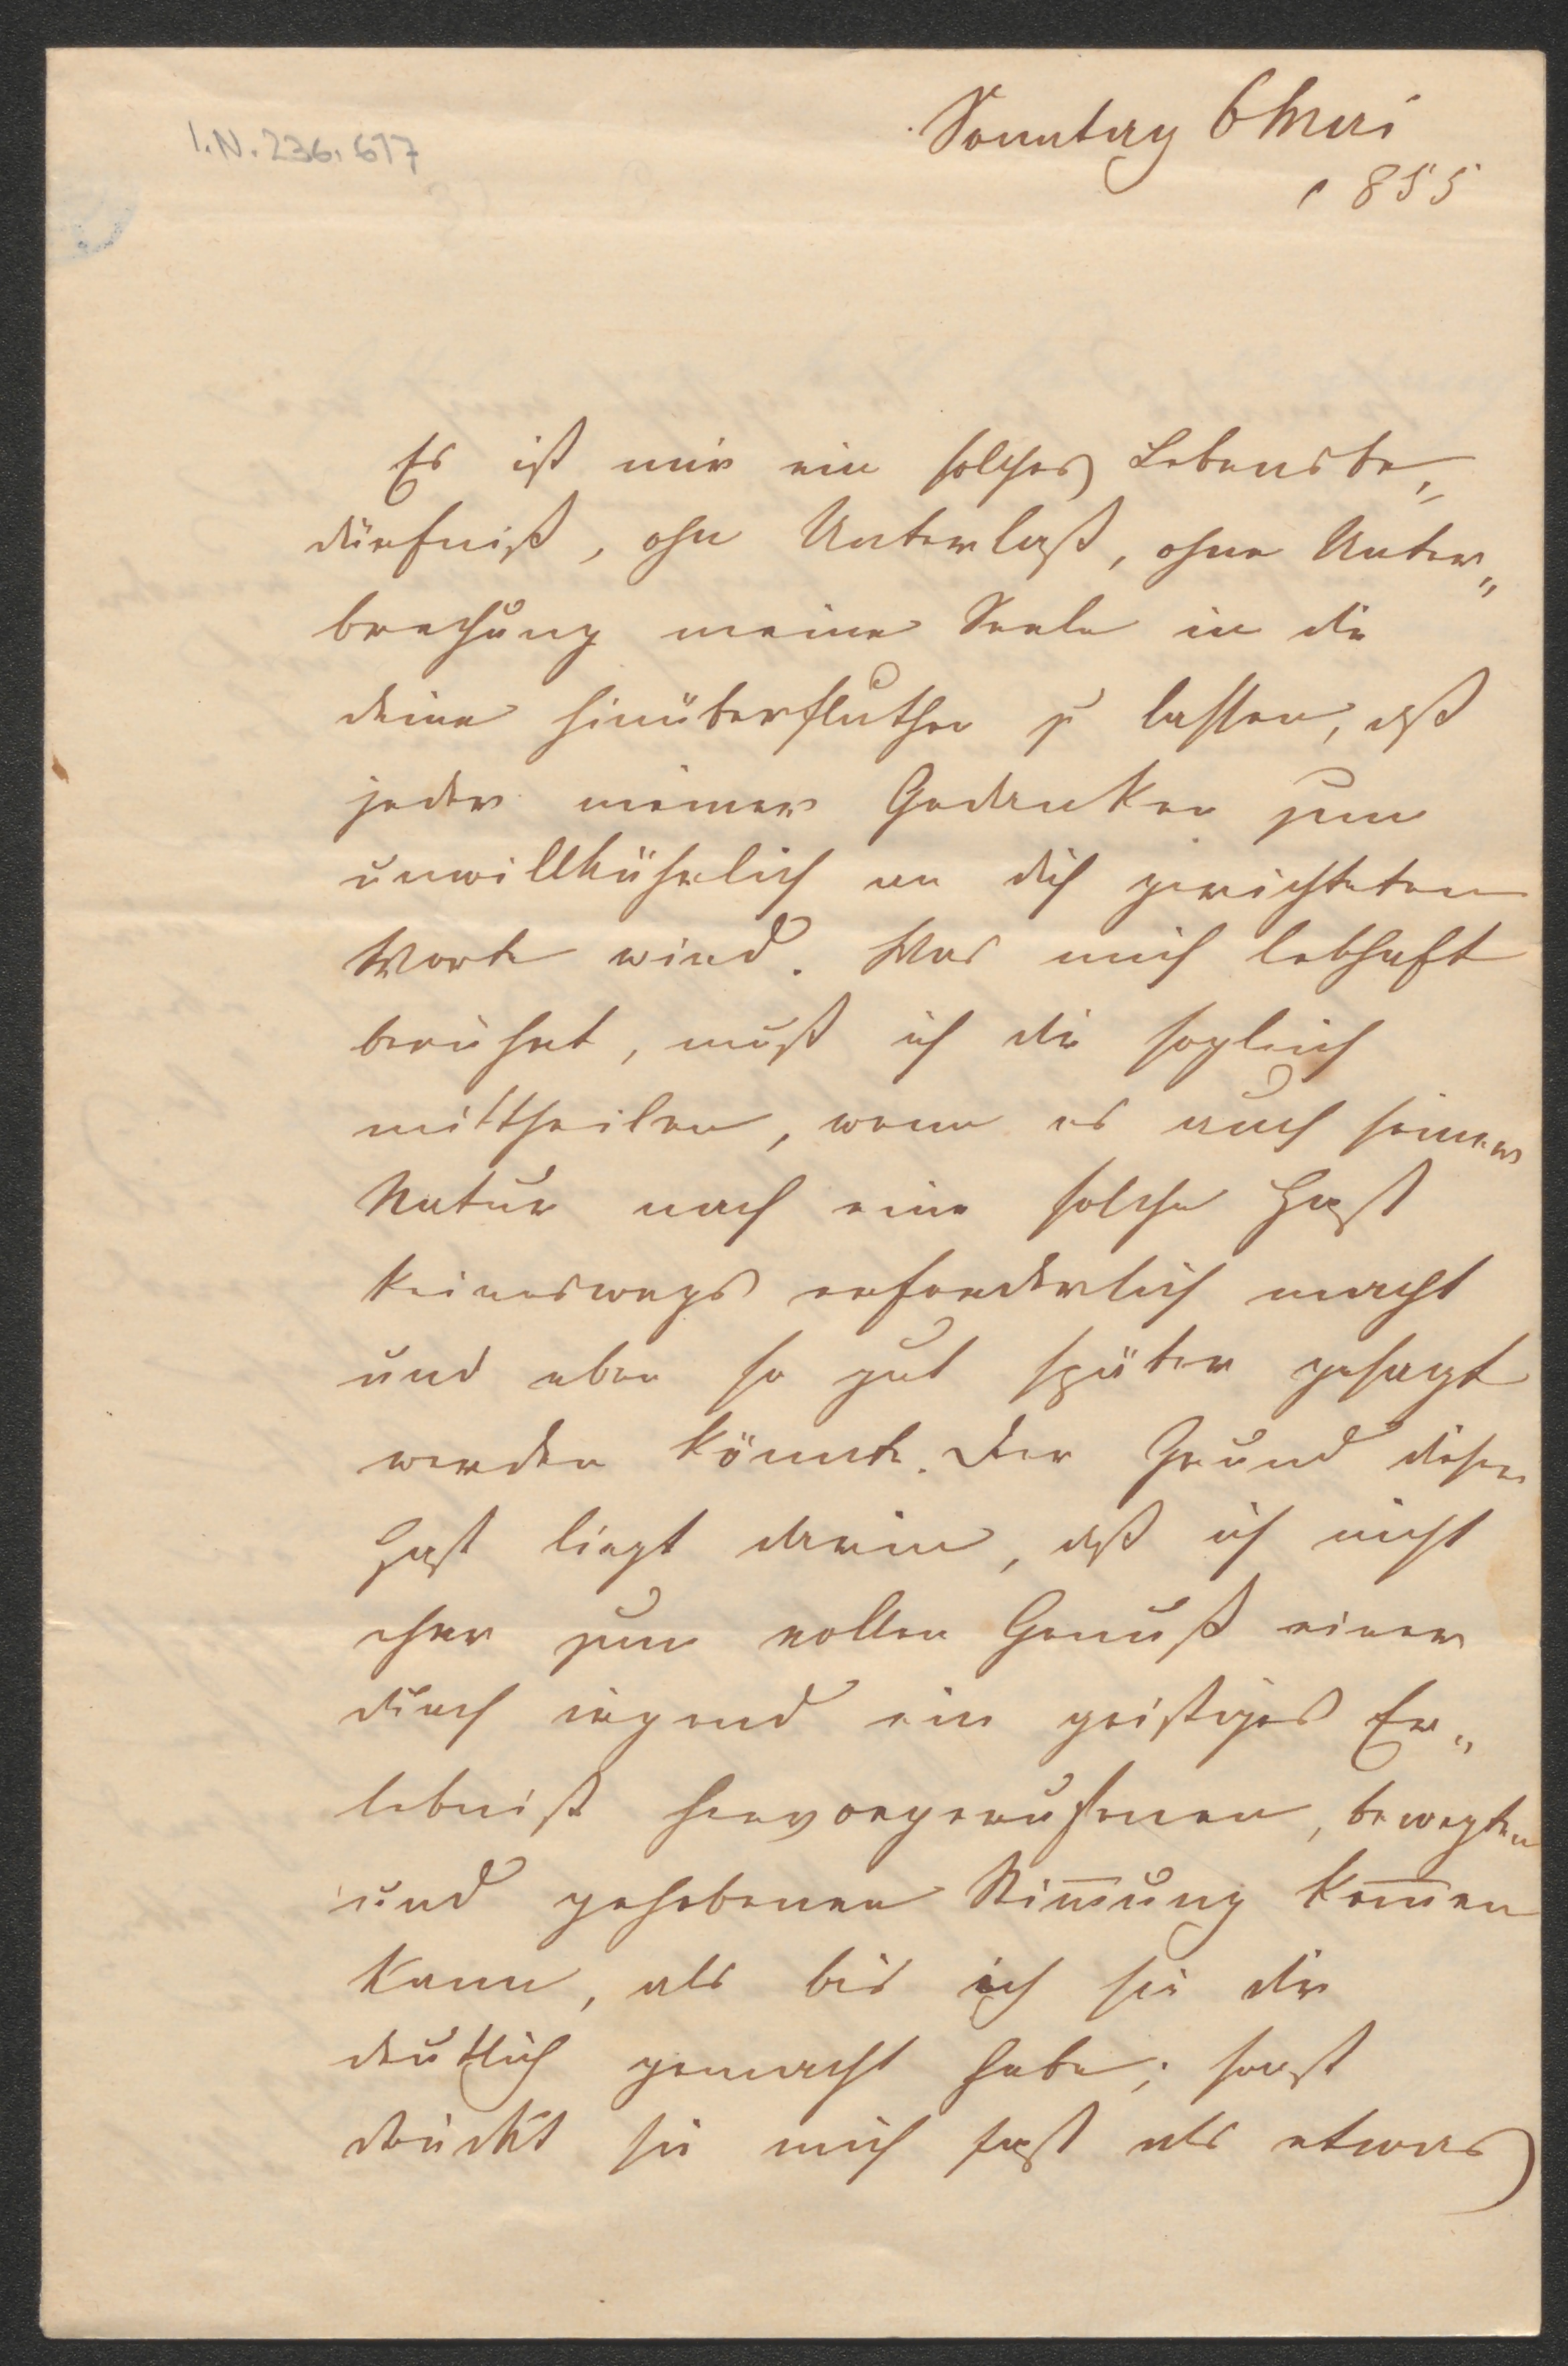 I.N. 236.617
Sonntag 6 Mai
1855
Es ist mir ein solches Lebensbe„
dürfniß, ohn Unterlaß, ohne Unter„
brechung meine Seele in die
deine hinüberfluthen zu lassen, daß
jeder meiner Gedanken zum
unwillkührlich an dich gerichteten
Worte wird. Was mich lebhaft
berührt, muß ich dir sogleich
mittheilen, wenn es auch seiner
Natur nach eine solche Hast
keineswegs erforderlich macht
und eben so gut später gesagt
werden könnte. Der Grund dieser
Hast liegt darin, daß ich nicht
eher zum vollen Genuß einer
durch irgend ein geistiges Er„
lebniß hervorgerufenen, bewegten
und gehobenen Stim̅ung kom̅en
kann, als bis ich sie dir
deutlich gemacht habe; sonst
drückt sie mich fast als etwas